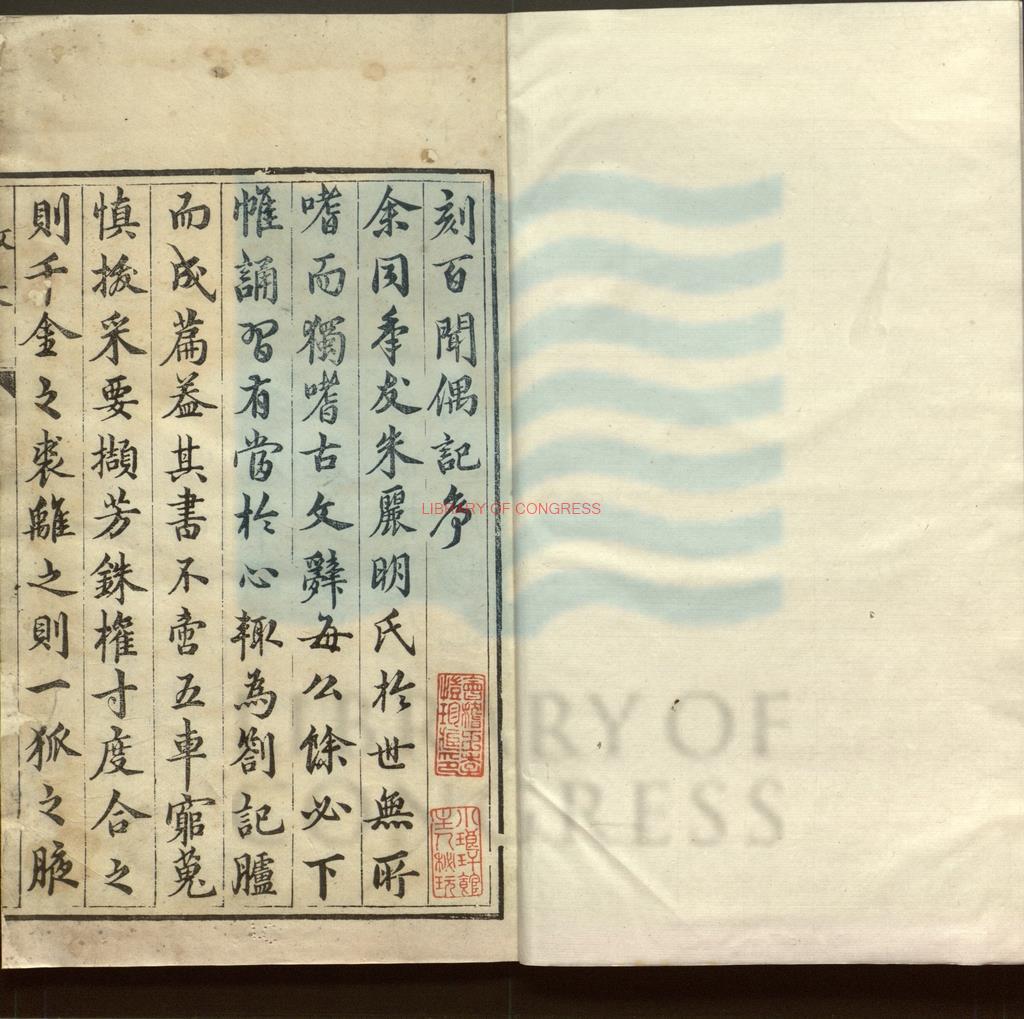 刻百聞偶記序
余同年友朱麗明氏於世無所
嗜而獨嗜古文辭每公餘必下
帷誦習有當於心輒為劄記臚
而成篇葢其書不啻五車窮蒐
慎掇采要擷芳銖權寸度合之
則千金之裘離之則一狐之腋
LIBRARY OF CONGRESS